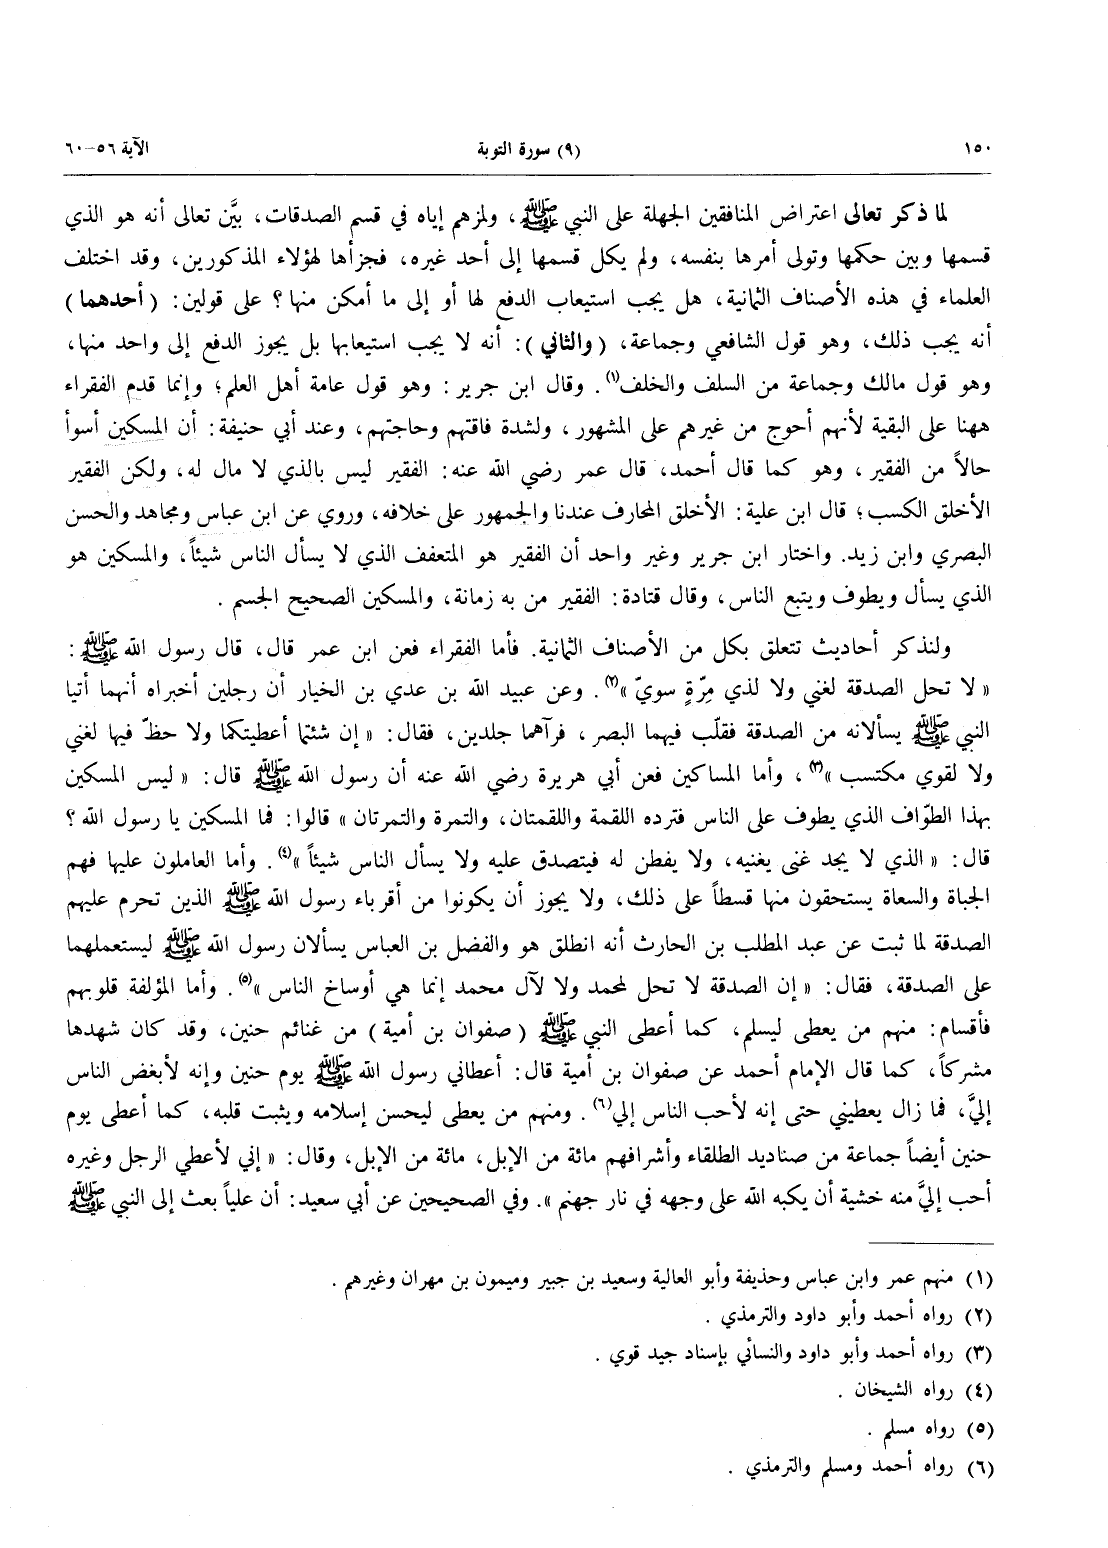 ١٥٠ (٩) سورة التوبة الآية ٥٦-٦٠
لما ذكر تعالى اعتراض المنافقين الجهلة على النبي ﷺ ، ولمزهم إياه في قسم الصدقات، بيَّن تعالى أنه هو الذي
قسمها وبين حكمها وتولى أمرها بنفسه، ولم يكل قسمها إلى أحد غيره، فجزأها لهؤلاء المذكورين، وقد اختلف
العلماء في هذه الأصناف الثمانية، هل يجب استيعاب الدفع لها أو إلى ما أمكن منها؟ على قولين: (أحدهما)
أنه يجب ذلك، وهو قول الشافعي وجماعة، (والثاني): أنه لا يجب استيعابها بل يجوز الدفع إلى واحد منها،
وهو قول مالك وجماعة من السلف والخلف(١). وقال ابن جرير: وهو قول عامة أهل العلم؛ وإنما قدم الفقراء
ههنا على البقية لأنهم أحوج من غيرهم على المشهور، ولشدة فاقتهم وحاجتهم، وعند أبي حنيفة: أن المسكين أسوأ
حالاً من الفقير، وهو كما قال أحمد، قال عمر رضي الله عنه: الفقير ليس بالذي لا مال له، ولكن الفقير
الأخلق الكسب؛ قال ابن علية: الأخلق المحارف عندنا والجمهور على خلافه، وروي عن ابن عباس ومجاهد والحسن
البصري وابن زيد. واختار ابن جرير وغير واحد أن الفقير هو المتعفف الذي لا يسأل الناس شيئاً، والمسكين هو
الذي يسأل ويطوف ويتبع الناس، وقال قتادة: الفقير من به زمانة، والمسكين الصحيح الجسم .
ولنذكر أحاديث تتعلق بكل من الأصناف الثمانية. فأما الفقراء فعن ابن عمر قال، قال رسول الله ﷺ :
« لا تحل الصدقة لغني ولا لذي مِرّةٍ سويّ »(٢). وعن عبيد الله بن عدي بن الخيار أن رجلين أخبراه أنهما أتيا
النبي ﷺ يسألانه من الصدقة فقلّب فيهما البصر، فرآهما جلدين، فقال: « إن شئتما أعطيتكما ولا حظّ فيها لغني
ولا لقوي مكتسب »(٣)، وأما المساكين فعن أبي هريرة رضي الله عنه أن رسول الله ﷺ قال: « ليس المسكين
بهذا الطوّاف الذي يطوف على الناس فترده اللقمة واللقمتان، والتمرة والتمرتان » قالوا: فما المسكين يا رسول الله؟
قال: « الذي لا يجد غنى يغنيه، ولا يفطن له فيتصدق عليه ولا يسأل الناس شيئاً »(٤). وأما العاملون عليها فهم
الجباة والسعاة يستحقون منها قسطاً على ذلك، ولا يجوز أن يكونوا من أقرباء رسول الله ﷺ الذين تحرم عليهم
الصدقة لما ثبت عن عبد المطلب بن الحارث أنه انطلق هو والفضل بن العباس يسألان رسول الله ﷺ ليستعملهما
على الصدقة، فقال: « إن الصدقة لا تحل لمحمد ولا لآل محمد إنما هي أوساخ الناس »(٥). وأما المؤلفة قلوبهم
فأقسام: منهم من يعطى ليسلم، كما أعطى النبي ﷺ (صفوان بن أمية) من غنائم حنين، وقد كان شهدها
مشركاً، كما قال الإمام أحمد عن صفوان بن أمية قال: أعطاني رسول الله ﷺ يوم حنين وإنه لأبغض الناس
إليَّ، فما زال يعطيني حتى إنه لأحب الناس إلي(٦). ومنهم من يعطى ليحسن إسلامه ويثبت قلبه، كما أعطى يوم
حنين أيضاً جماعة من صناديد الطلقاء وأشرافهم مائة من الإبل، مائة من الإبل، وقال: « إني لأعطي الرجل وغيره
أحب إليَّ منه خشية أن يكبه الله على وجهه في نار جهنم ». وفي الصحيحين عن أبي سعيد: أن علياً بعث إلى النبي ﷺ
(١) منهم عمر وابن عباس وحذيفة وأبو العالية وسعيد بن جبير وميمون بن مهران وغيرهم .
(٢) رواه أحمد وأبو داود والترمذي .
(٣) رواه أحمد وأبو داود والنسائي بإسناد جيد قوي .
(٤) رواه الشيخان .
(٥) رواه مسلم .
(٦) رواه أحمد ومسلم والترمذي .